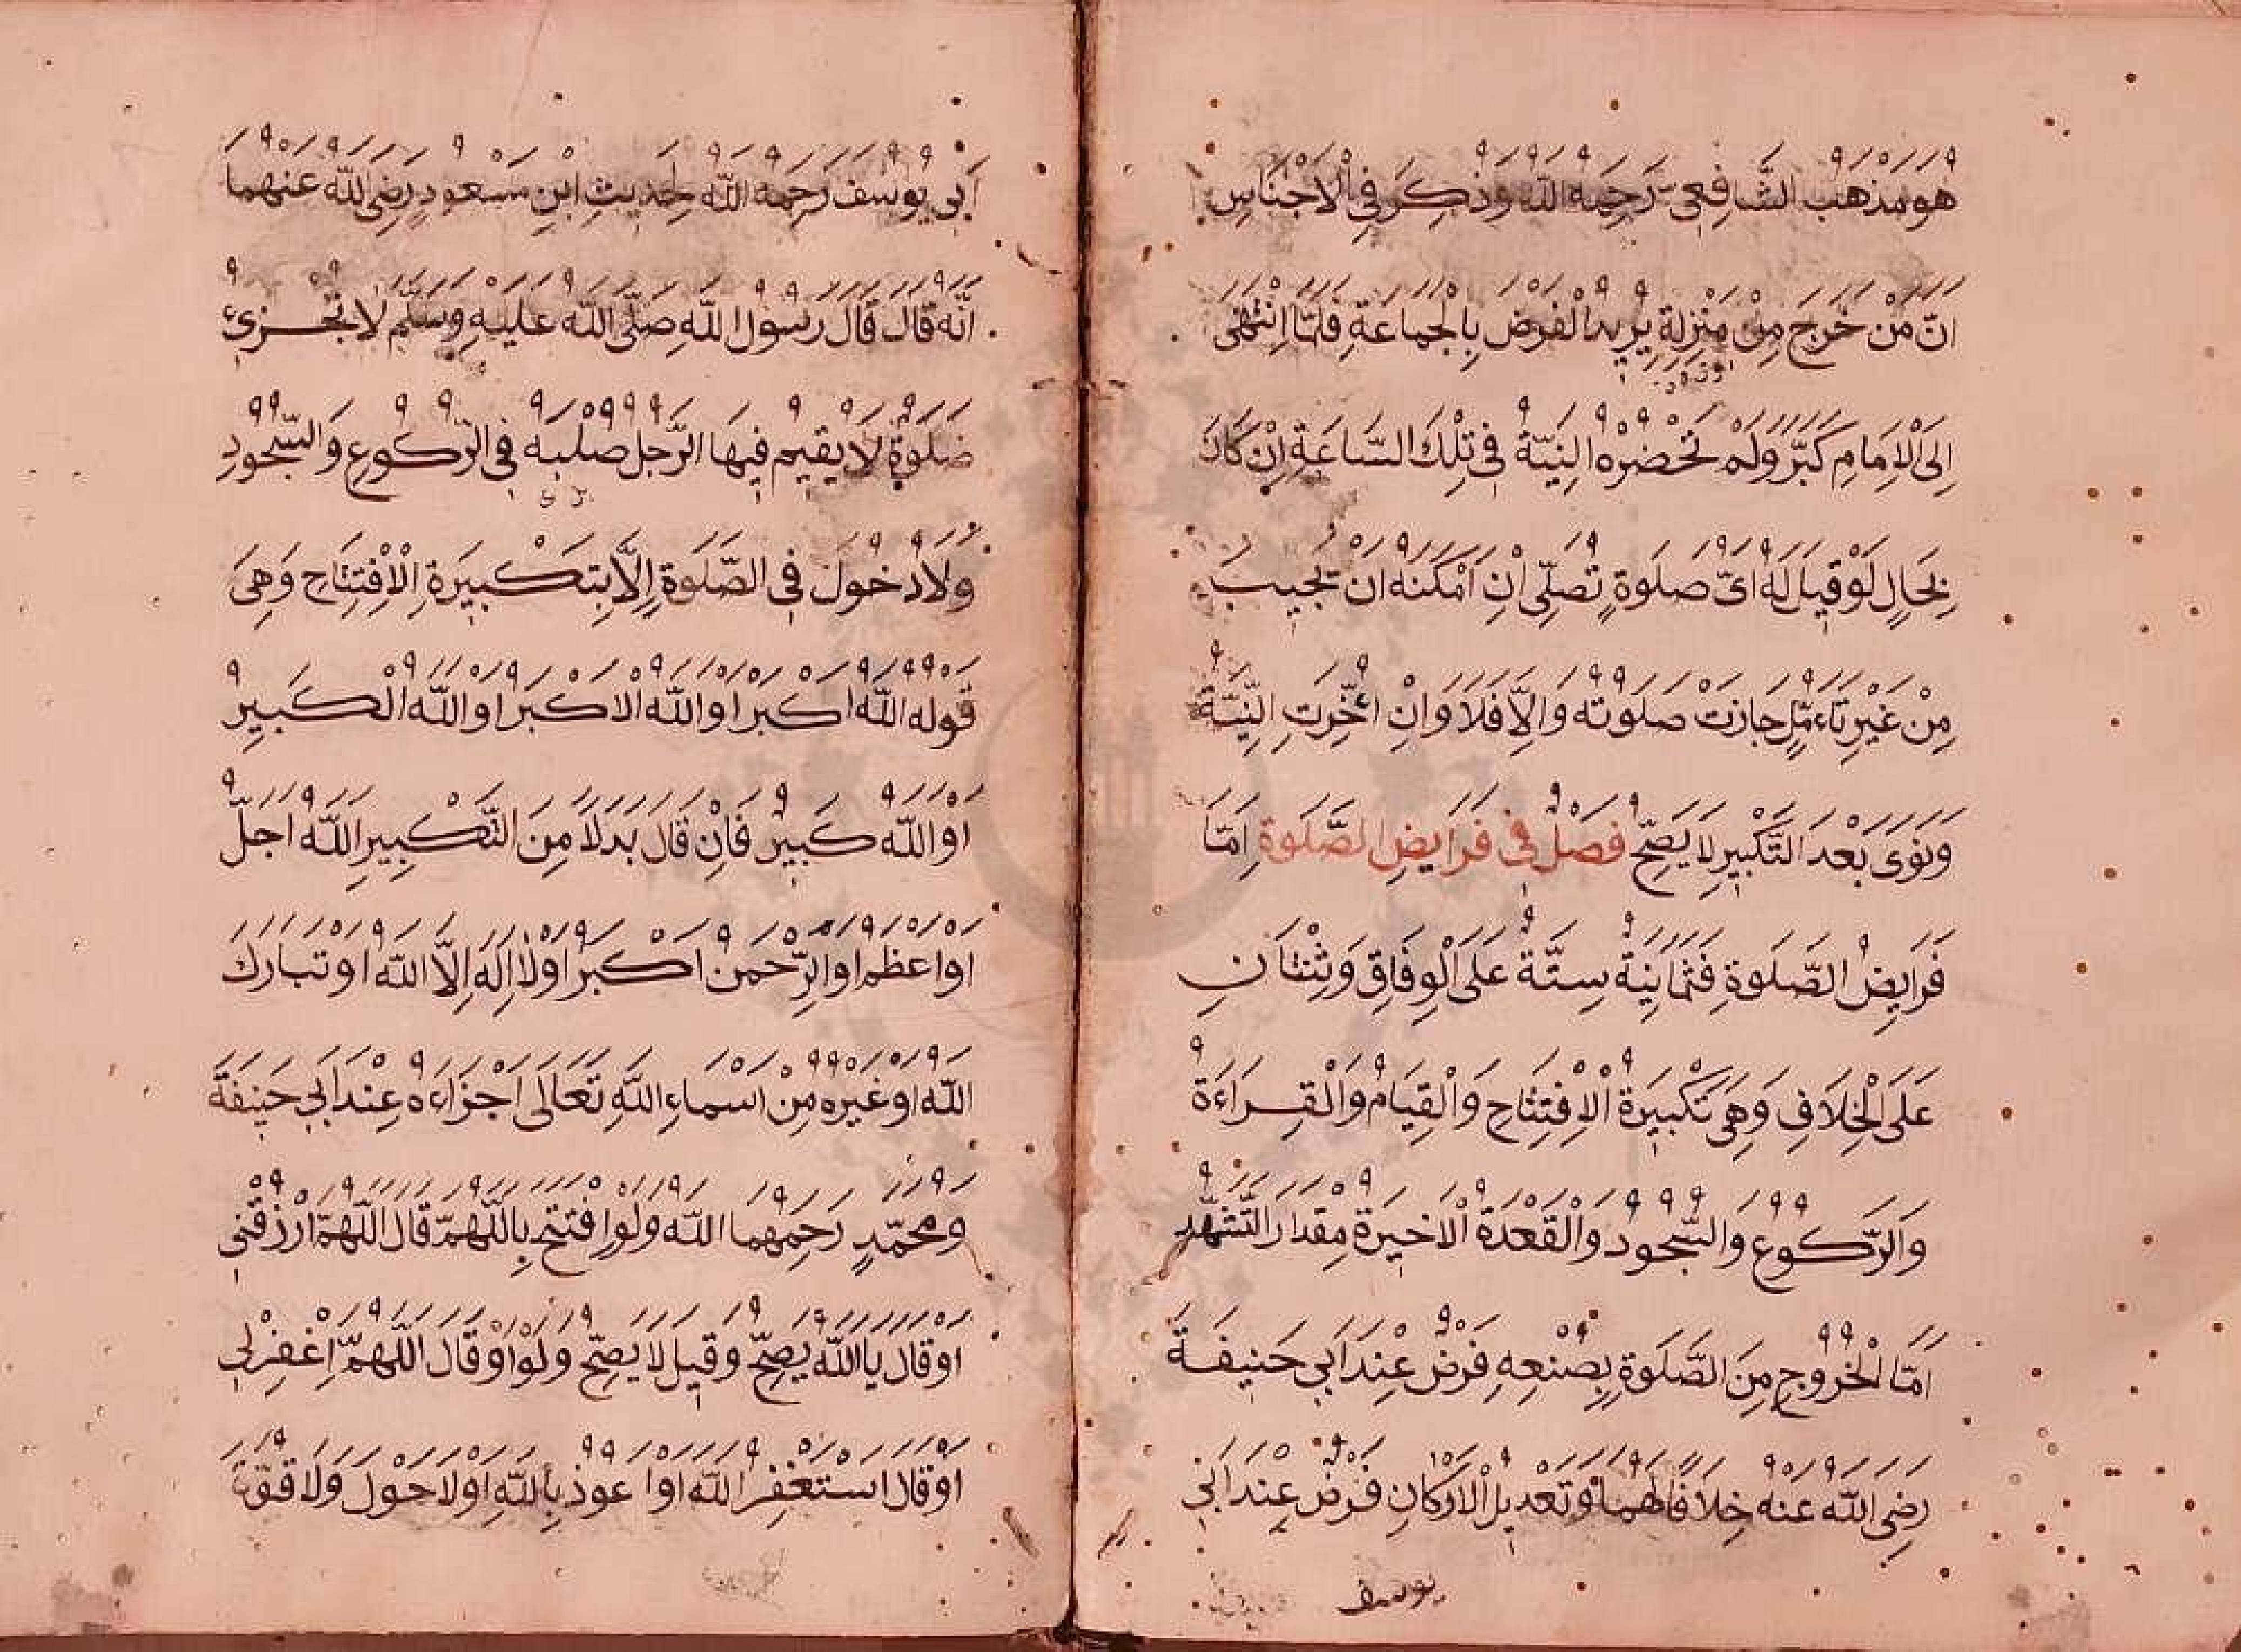 هُوَ مَذْهَبُ الشَّافِعِيّ رَحِمَهُ اللّٰه وَذُكِرَ فِي الْاَجْنَاسِ
اَنَّ مَنْ خَرَجَ مِنْ مَنْزِلِهِ يُرِيدُ الْفَرْضَ بِالْجَمَاعَةِ فَلَمَّا انْتَهٰى
اِلَى الْاِمَامِ كَبَّرَ وَلَمْ تَحْضُرْهُ النِيَّةُ فِي تِلْكَ السَّاعَةِ اِنْ كَانَ
بِحَالٍ لَوْ قِيلَ لَهُ اَىَّ صَلَوةٍ تُصَلِّى اِنْ اَمْكَنَهُ اَنْ يُجِيبَ
مِنْ غَيْرِ تَاءَمُّلٍ جَازَتْ صَلَوتُهُ وَاِلَّا فَلَا وَاِنْ اُخِّرَتِ النِّيَّةُ
وَنَوَى بَعْدَ التَّكْبِيرِ لَا يَصِحُّ فَصْلٌ فِي فَرَايِضِ الصَّلَوةِ اَمَّا
فَرَايِضُ الصَّلَوةِ فَثَمَانِيَةٌ سِتَّةٌ عَلَى الْوِفَاقِ وَثِنْتَانِ
عَلَى الْخِلَافِ وَهِيَ تَكْبِيرَةُ الْاِفْتِتَاحِ وَالْقِيَامُ وَالْقِرَاءَةُ
وَالرُّكُوعُ وَالسُّجُودُ وَالْقَعْدَةُ الْاَخِيرَةُ مِقْدَارَ التَّشَهُّدِ
اَمَّا الْخُرُوجُ مِنَ الصَّلَوةِ بِصُنْعِهِ فَرْضٌ عِنْدَ اَبِي حَنِيفَةَ
رَضِىَ اللّٰهُ عَنْهُ خِلَافًا لَهُمَا وَتَعْدِيلُ الْاَرْكَانِ فَرْضٌ عِنْدَ اَبِي
يوسف
اَبِي يُوسُفَ رَحِمَهُ اللّٰه لِحَدِيثِ ابْنِ مَسْعُودٍ رَضِىَ اللّٰهُ عَنْهُمَا
اَنَّهُ قَالَ قَالَ رَسُولُ اللّٰهِ صَلَّى اللّٰهُ عَلَيْهِ وَسَلَّمَ لَا تُجْزِئُ
صَلَوةٌ لَا يُقِيمُ فِيهَا الرَّجُلُ صُلْبَهُ فِي الرُّكُوعِ وَالسُّجُودِ
وَلَا دُخُولَ فِي الصَّلَوةِ اِلَّا بِتَكْبِيرَةِ الْاِفْتِتَاحِ وَهِيَ
قَوْلُهُ اللّٰهُ اَكْبَرُ اَوِ اللّٰهُ الْاَكْبَرُ اَوِ اللّٰهُ الْكَبِيرُ
اَوِ اللّٰهُ كَبِيرٌ فَاِنْ قَالَ بَدَلًا مِنَ التَّكْبِيرِ اللّٰهُ اَجَلُّ
اَوْ اَعْظَمُ اَوِ الرَّحْمٰنُ اَكْبَرُ اَوْ لَا اِلٰهَ اِلَّا اللّٰهُ اَوْ تَبَارَكَ
اللّٰهُ اَوْ غَيْرَهُ مِنْ اَسْمَاءِ اللّٰهِ تَعَالَى اَجْزَاءَهُ عِنْدَ اَبِي حَنِيفَةَ
وَمُحَمَّدٍ رَحِمَهُمَا اللّٰهُ وَلَوِ افْتَتَحَ بِاللّٰهُمَّ قَالَ اللّٰهُمَّ ارْزُقْنِي
اَوْ قَالَ يَا اَللّٰهُ يَصِحُّ وَقِيلَ لَا يَصِحُّ وَلَوْ اَوْ قَالَ اللّٰهُمَّ اغْفِرْ لِي
اَوْ قَالَ اَسْتَغْفِرُ اللّٰهَ اَوْ اَعُوذُ بِاللّٰهِ اَوْ لَا حَوْلَ وَلَا قُوَّةَ